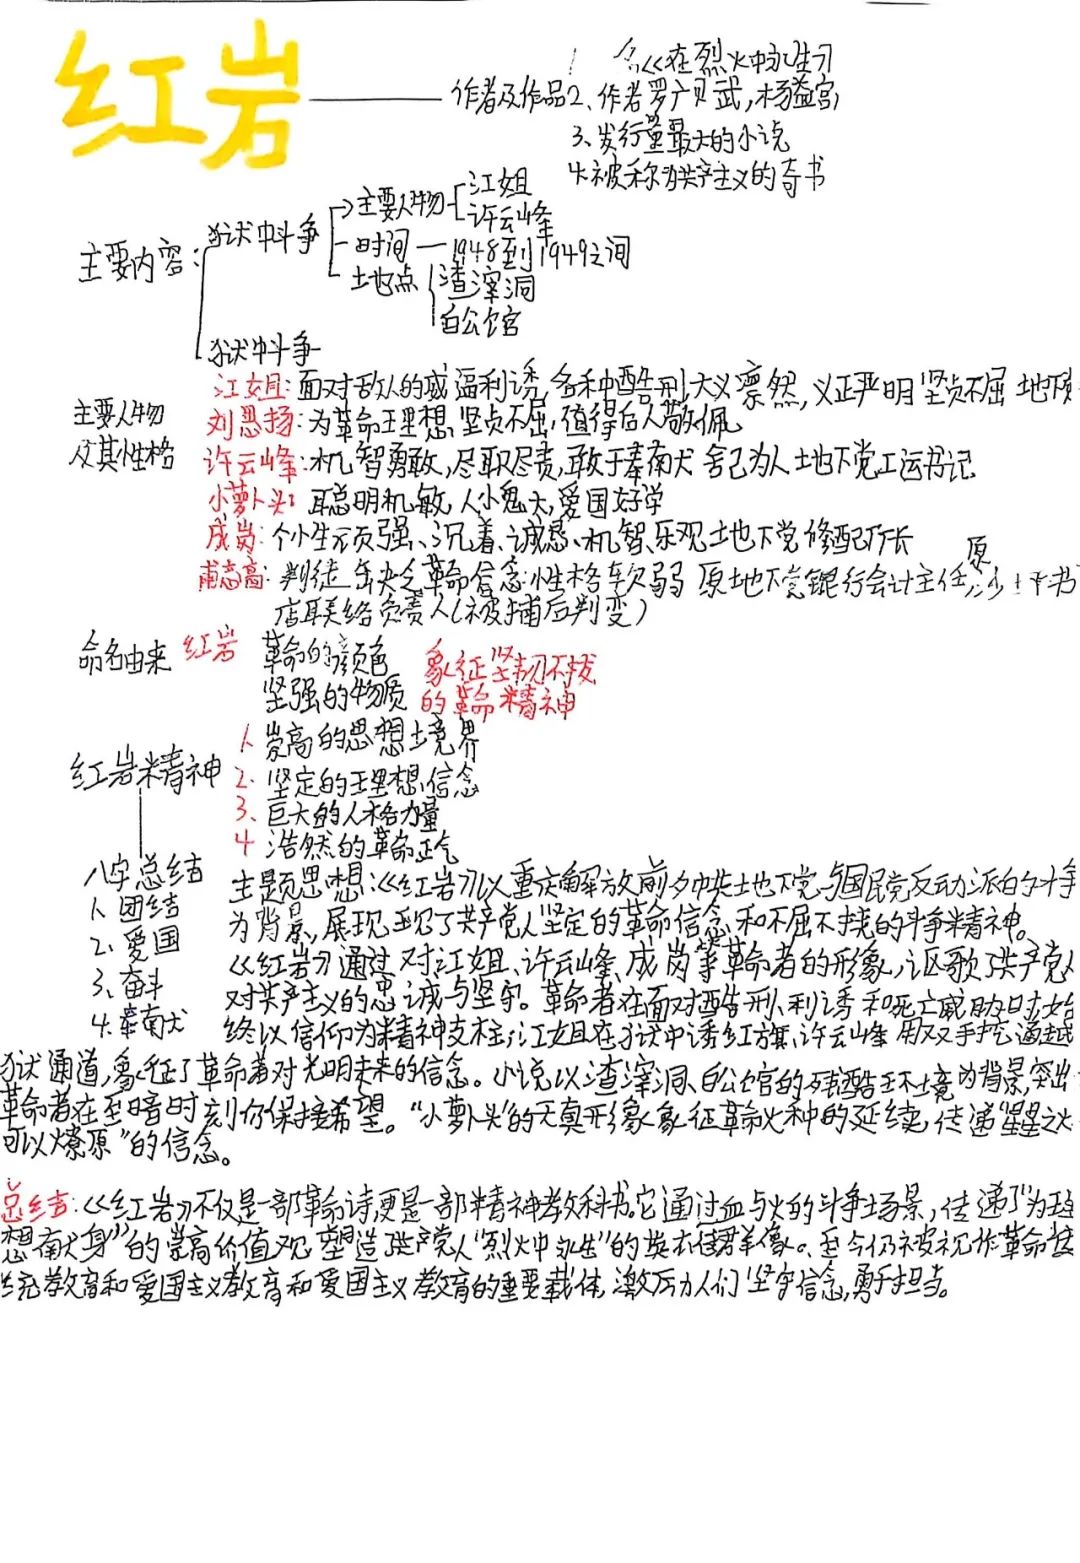 红岩
名《在烈火中永生》
作者及作品2、作者罗广贝武,杨益宫,
3、发行量最大的小说
4.被称为共产主义的奇书
主要内容:
狱中斗争
主要人物 江姐
许云峰
时间 — 1948到1949之间
地点 渣滓洞
白公馆
狱中斗争
主要人物及其性格
江姐:面对敌人的威逼利诱,各种酷刑大义凛然,义正严明 坚贞不屈 地
刘思扬:为革命理想,坚贞不屈,值得后人敬佩
许云峰:机智勇敢,尽职尽责,敢于奉献 舍己为人 地下党工运书记
小萝卜头:聪明机敏,人小鬼大,爱国好学
成岗:个性顽强、沉着、诚恳、机智、乐观 地下党修配厂长
甫志高:判徒 缺乏革命信念:性格软弱 原地下党银行会计主任,原沙坪书
店联络负责人(被捕后判变)
命名由来 红岩 革命的颜色
坚强的物质
象征坚韧不拔
的革命精神
红岩精神
1. 崇高的思想境界
2. 坚定的理想信念
3、巨大的人格力量
4 浩然的革命正气
八字总结
1. 团结
2. 爱国
3、奋斗
4. 奉献
主题思想:《红岩》以重庆解放前夕中共地下党与国民党反动派的斗争
为背景,展现现了共产党人坚定的革命信念和不屈不挠的斗争精神。
《红岩》通过对江姐、许云峰、成岗等革命者的形象,讴歌了共产党人
对共产主义的忠诚与坚守。革命者在面对酷刑、利诱和死亡威胁时始
终以信仰为精神支柱;江姐在狱中诱红旗、许云峰用双手挖通越
狱通道,象征了革命者对光明未来的信念。小说以渣滓洞、白公馆的残酷环境为背景,突出
革命者在至暗时刻仍保持希望。“小萝卜头”的天真形象象征革命火种的延续,传递“星星之火
可以燎原”的信念。
总结:《红岩》不仅是一部革命诗,更是一部精神教科书。它通过血与火的斗争场景,传递了“为理
想献身”的崇高价值观,塑造了共产党人“烈火中永生”的英雄群像。至今仍被视作革命传
统教育和爱国主义教育和爱国主义教育的重要载体,激励人们坚守信念,勇于担当。